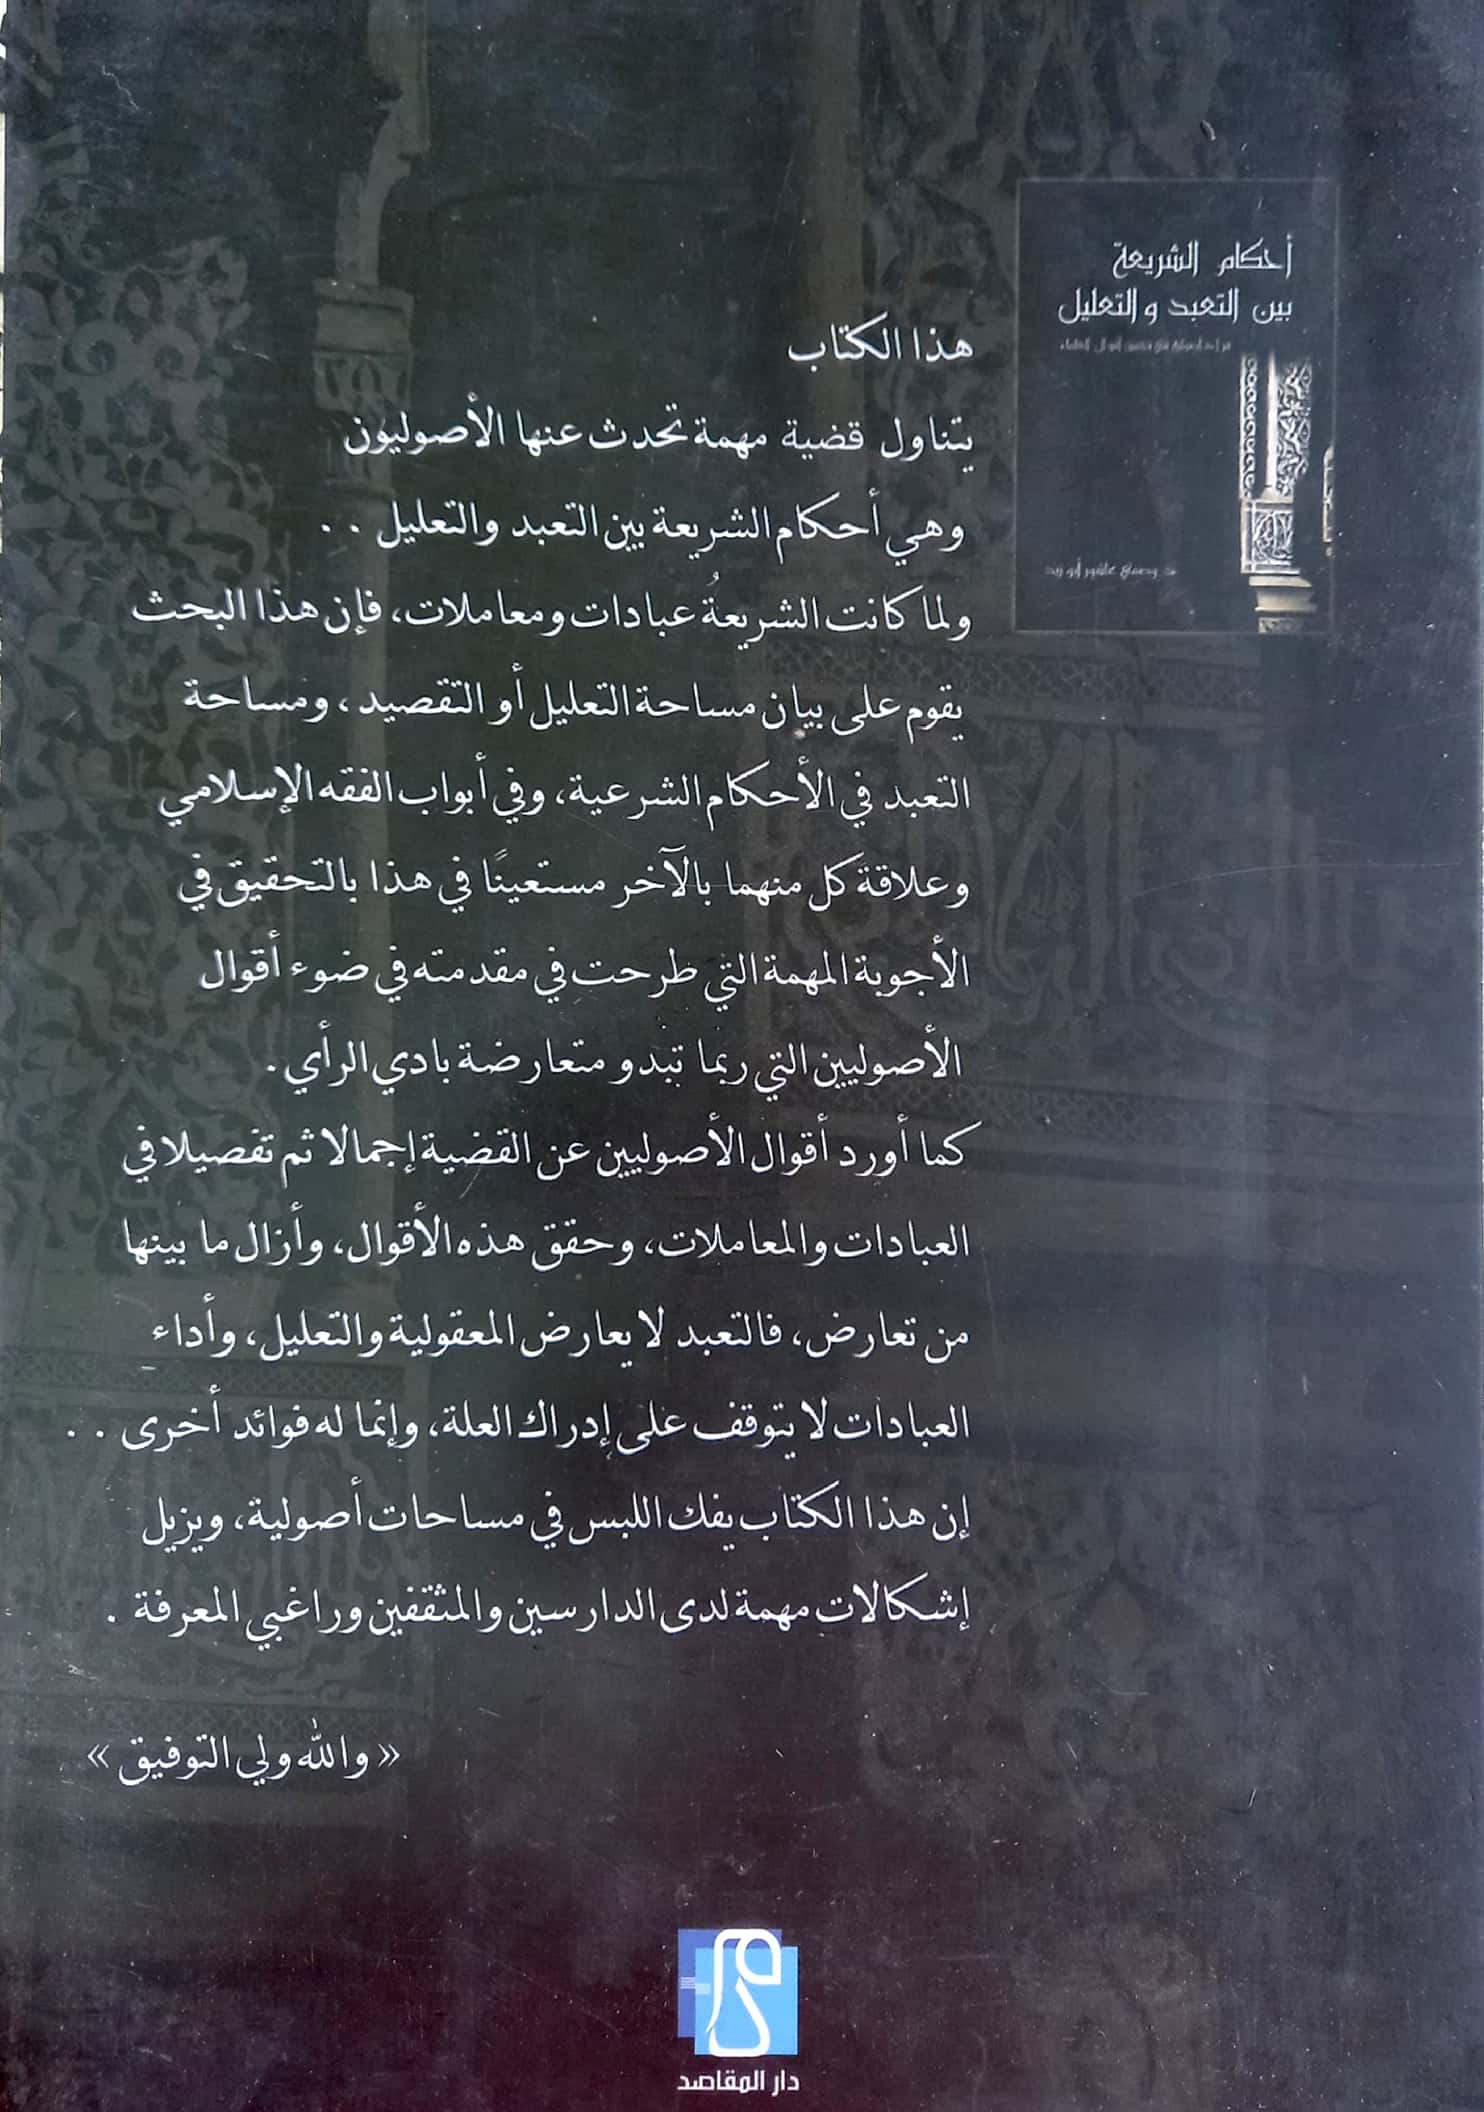 أحكام الشريعة
بين التعبد والتعليل
د. وصفي عاشور أبو زيد
هذا الكتاب
يتناول قضية مهمة تحدث عنها الأصوليون
وهي أحكام الشريعة بين التعبد والتعليل ..
ولما كانت الشريعةُ عبادات ومعاملات، فإن هذا البحث
يقوم على بيان مساحة التعليل أو التقصيد، ومساحة
التعبد في الأحكام الشرعية، وفي أبواب الفقه الإسلامي
وعلاقة كل منهما بالآخر مستعينًا في هذا بالتحقيق في
الأجوبة المهمة التي طرحت في مقدمته في ضوء أقوال
الأصوليين التي ربما تبدو متعارضة بادي الرأي.
كما أورد أقوال الأصوليين عن القضية إجمالا ثم تفصيلا في
العبادات والمعاملات، وحقق هذه الأقوال، وأزال ما بينها
من تعارض، فالتعبد لا يعارض المعقولية والتعليل، وأداء
العبادات لا يتوقف على إدراك العلة، وإنما له فوائد أخرى ..
إن هذا الكتاب يفك اللبس في مساحات أصولية، ويزيل
إشكالات مهمة لدى الدارسين والمثقفين وراغبي المعرفة .
«والله ولي التوفيق»
دار المقاصد